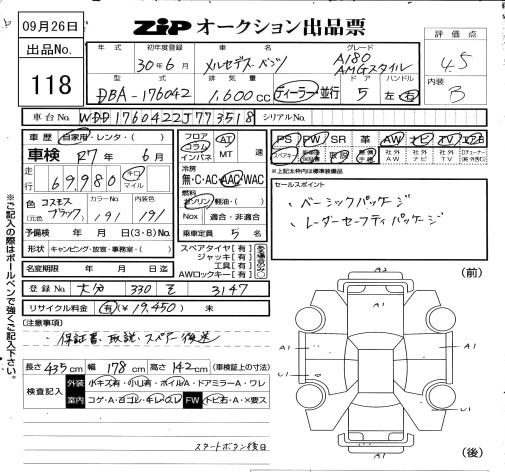 09月26日
ZIP オークション出品票
出品No. 118
年式 初年度登録 車名 グレード
30年6月 メルセデス・ベンツ A180 AMGスタイル
型式 排気量 ドア ハンドル
DBA-176042 1,600cc ディーラー・並行 5 左・右
評価点 4.5
内装 B
車台No. WDD1760422J773518 シリアルNo.
車歴 自家用・レンタ・( )
車検 R7年 6月
走行 69,980 キロ マイル
色 コスモスブラック カラーNo. 191 内装色 191
(元色 )
予備検 年 月 日(3・8)No.
形状 キャンピング・放宣・事務室・( )
名変期限 年 月 日迄
フロア コラム インパネ AT MT 速
冷房 無・C・AC・AAC・WAC
燃料 ガソリン・軽油・( )
Nox 適合・非適合
乗車定員 5 名
スペアタイヤ【有】
ジャッキ【有】
工具【有】
AWロックキー【有】
PS PW SR 革 AW ナビ TV エアB
スペアキー 新車時保証書 取説 整備手帳 社外AW 社外ナビ 社外TV
※上記太枠内は標準装備品
セールスポイント
・ベーシックパッケージ
・レーダーセーフティパッケージ
登録No. 大分 330 そ 3147
リサイクル料金 有(¥19,450) 未
(注意事項)
・保証書、取説、スペアー後送
長さ 435cm 幅 178cm 高さ 142cm (車検証上の寸法)
検査記入 外装 小キズ有・小凹有・ホイルA・ドアミラーA・ワレ
室内 コゲ・A・ヨゴレ・キレ・スレ FW トビ石・A・X要ス
スタートボタン後日
(前)
A2
A1
A1 A1
U1 U1
A1
(後)
※ご記入の際はボールペンで強くご記入下さい。